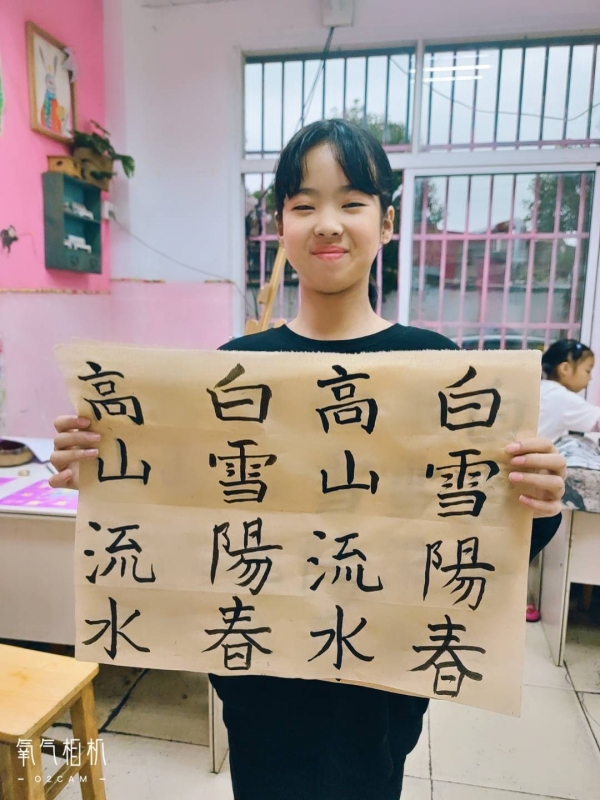 白雪陽春
高山流水
白雪陽春
高山流水
氧气相机
O2CAM